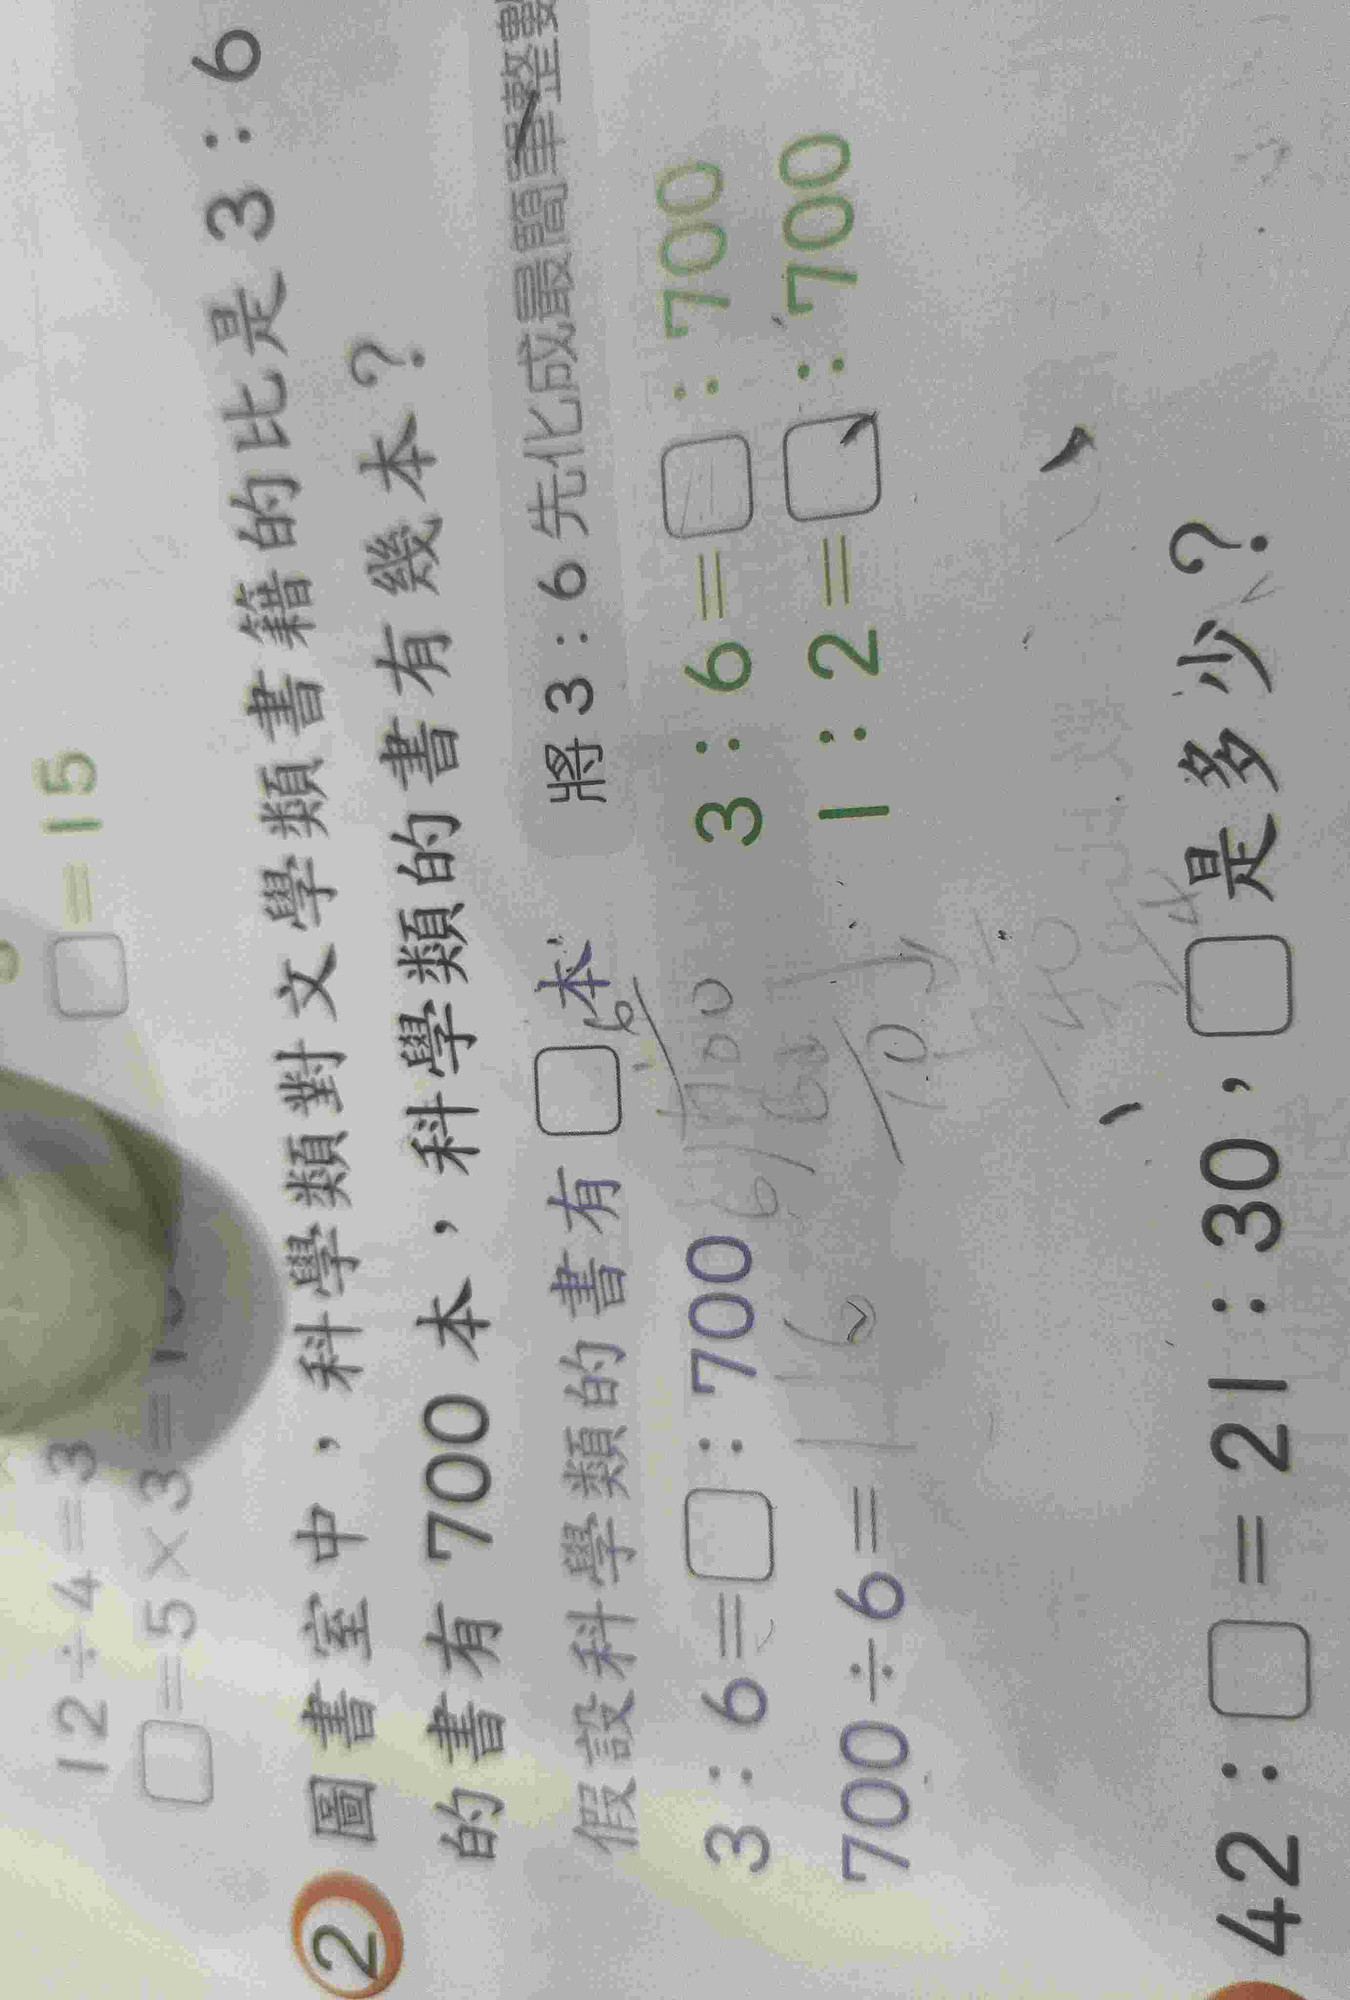 12÷4=3
□=5×3=1
□=15
2 圖書室中，科學類對文學類書籍的比是3：6
的書有700本，科學類的書有幾本？
假設科學類的書有□本
3：6=□：700
700÷6=
將3：6先化成最簡單整數
3：6=□：700
1：2=□：700
42：□=21：30，□是多少？